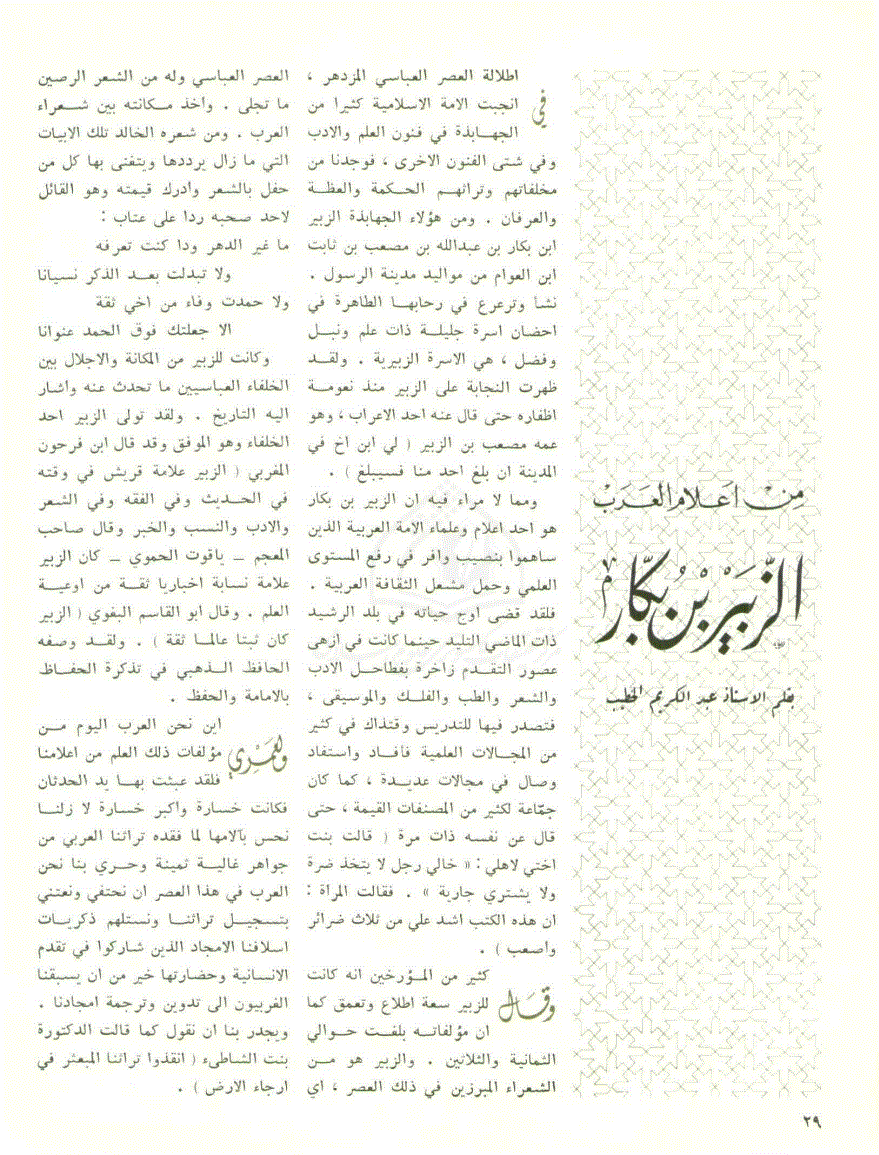 من أعلام العرب
الزبير بن بكار
بقلم الاستاذ عبد الكريم الخطيب
في اطلالة العصر العباسي المزدهر ،
انجبت الامة الاسلامية كثيرا من
الجهـابذة في فنون العلم والادب
وفي شتى الفنون الاخرى ، فوجدنا من
مخلفاتهم وتراثهـم الحـكمة والعظـة
والعرفان . ومن هؤلاء الجهابذة الزبير
ابن بكار بن عبدالله بن مصعب بن ثابت
ابن العوام من مواليد مدينة الرسول .
نشأ وترعرع في رحابهـا الطاهرة في
احضان اسرة جليلـة ذات علم ونبـل
وفضل ، هي الاسرة الزبيرية . ولقـد
ظهرت النجابة على الزبير منذ نعومـة
اظفاره حتى قال عنه احد الاعراب ، وهو
عمه مصعب بن الزبير ( لي ابن اخ في
المدينة ان بلغ احد منا فسيبلغ ) .
ومما لا مراء فيه ان الزبير بن بكار
هو احد اعلام وعلماء الامة العربية الذين
ساهموا بنصيب وافر في رفع المستوى
العلمي وحمل مشعل الثقافة العربية .
فلقد قضى اوج حياته في بلد الرشيد
ذات الماضي التليد حينما كانت في ازهى
عصور التقدم زاخرة بفطاحـل الادب
والشعر والطب والفلـك والموسيقى ،
فتصدر فيها للتدريس وقتذاك في كثير
من المجـالات العلمية فأفـاد واستفاد
وصال في مجالات عديـدة ، كما كان
جمّاعة لكثير من المصنفات القيمة ، حتى
قال عن نفسه ذات مرة ( قالت بنت
اختي لاهلي : « خالي رجل لا يتخذ ضرة
ولا يشتري جارية » . فقالت المرأة :
ان هذه الكتب اشد علي من ثلاث ضرائر
واصعب ) .
وقال كثير من المـؤرخين انه كانت
للزبير سعة اطلاع وتعمق كما
ان مؤلفاتـه بلغت حـوالي
الثمانية والثلاثين . والزبير هو مـن
الشعراء المبرزين في ذلك العصر ، اي
العصر العباسي وله من الشعر الرصين
ما تجلى . واخذ مـكانته بين شـعراء
العرب . ومن شعره الخالد تلك الابيات
التي ما زال يرددها ويتغنى بها كل من
حفل بالشعر وادرك قيمته وهو القائل
لاحد صحبه ردا على عتاب :
ما غير الدهر ودا كنت تعرفه
ولا تبدلت بعـد الذكر نسيانا
ولا حمدت وفاء من اخي ثقة
الا جعلتك فوق الحمد عنوانا
وكانت للزبير من المكانة والاجلال بين
الخلفاء العباسيين ما تحدث عنه واشار
اليه التاريخ . ولقد تولى الزبير احد
الخلفاء وهو الموفق وقد قال ابن فرحون
المغربي ( الزبير علامة قريش في وقته
في الحـديث وفي الفقه وفي الشعر
والادب والنسب والخبر وقال صاحب
المعجم ــ ياقوت الحموي ــ كان الزبير
علامة نسابة اخباريا ثقـة من اوعيـة
العلم . وقال ابو القاسم البغوي ( الزبير
كان ثبتا عالمـا ثقة ) . ولقـد وصفه
الحافظ الـذهبي في تذكرة الحفـاظ
بالامامة والحفظ .
ولعمري اين نحن العرب اليوم مـن
مؤلفات ذلك العلم من اعلامنا
فلقد عبثت بهـا يد الحدثان
فكانت خسارة واكبر خسارة لا زلنـا
نحس بآلامها لما فقده تراثنا العربي من
جواهر غاليـة ثمينة وحـري بنا نحن
العرب في هذا العصر ان نحتفي ونعتني
بتسجيـل تراثنـا ونستلهم ذكريـات
اسلافنا الامجاد الذين شاركوا في تقدم
الانسانية وحضارتها خير من ان يسبقنا
الغربيون الى تدوين وترجمة امجادنا .
ويجدر بنا ان نقول كما قالت الدكتورة
بنت الشاطىء ( انقذوا تراثنا المبعثر في
ارجاء الارض ) .
٢٩